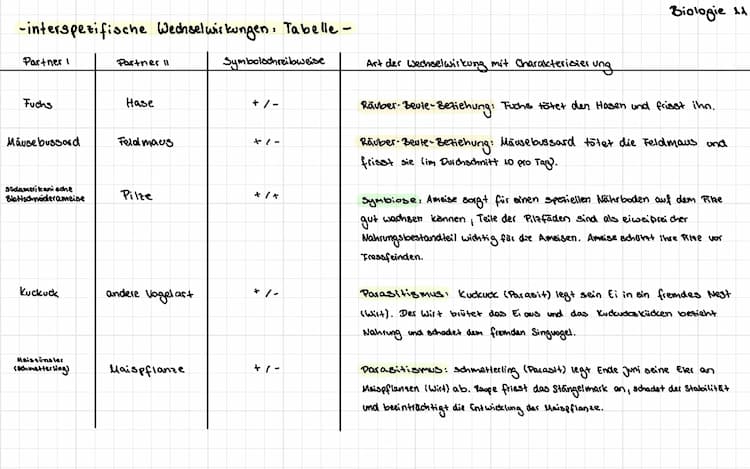 Biologie 11
-interspezifische Wechselwirkungen: Tabelle-
Partner I Partner II Symbolschreibweise Art der Wechselwirkung mit Charakterisierung
Fuchs Hase +/- Räuber-Beute-Beziehung: Fuchs tötet den Hasen und frisst ihn.
Mäusebussard Feldmaus +/- Räuber-Beute-Beziehung: Mäusebussard tötet die Feldmaus und
frisst sie (im Durchschnitt 10 pro Tag).
Südamerikanische
Blattschneiderameise Pilze +/+ Symbiose: Ameise sorgt für einen speziellen Nährboden auf dem Pilze
gut wachsen können, Teile der Pilzfäden sind als eiweißreicher
Nahrungsbestandteil wichtig für die Ameisen. Ameise schützt ihre Pilze vor
Fressfeinden.
Kuckuck andere Vogelart +/- Parasitismus: Kuckuck (Parasit) legt sein Ei in ein fremdes Nest
(Wirt). Der Wirt brütet das Ei aus und das Kuckucksküken bezieht
Nahrung und schadet dem fremden Singvogel.
Maiszünsler
(Schmetterling) Maispflanze +/- Parasitismus: Schmetterling (Parasit) legt Ende Juni seine Eier an
Maispflanzen (Wirt) ab. Raupe frisst das Stängelmark an, schadet der Stabilität
und beeinträchtigt die Entwicklung der Maispflanze.